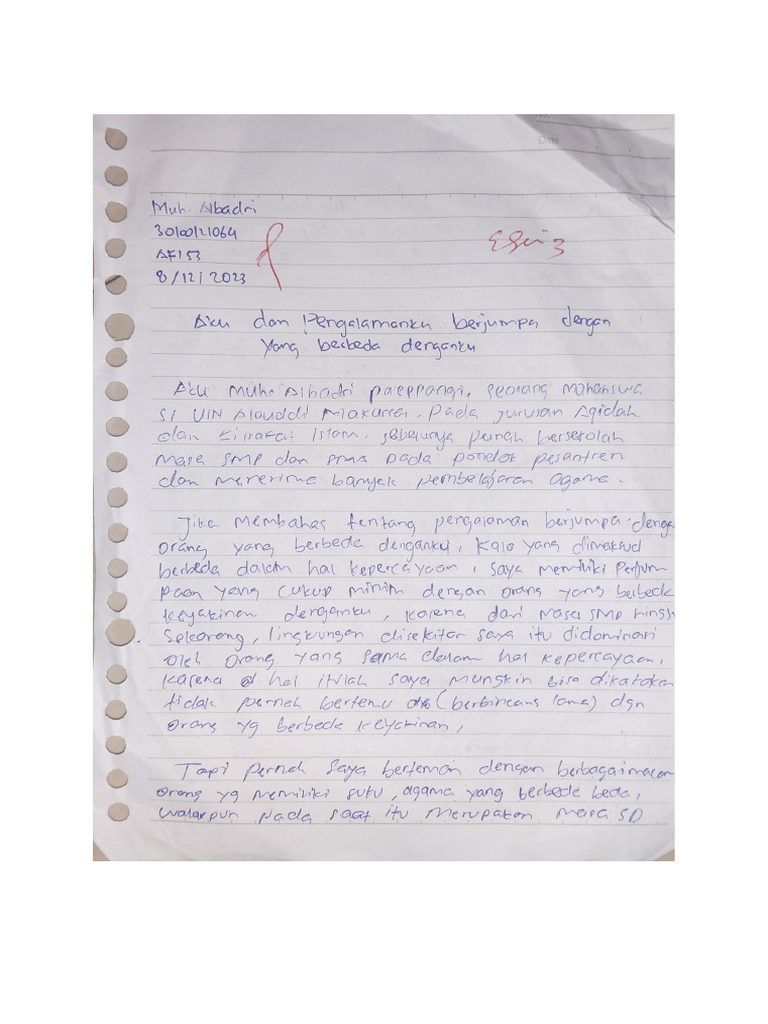 No.
Date
Muh. Albadri
30100121064
AFI S3
8/12/2023
Esai 3
Aku dan Pengalamanku berjumpa dengan
yang berbeda denganku
Aku Muh. Albadri paeppangi, seorang Mahasiswa
S1 UIN Alauddi Makassar, Pada jurusan Aqidah
dan Filsafat Islam. sebelunya pernah bersekolah
Masa SMP dan SMA pada pondok pesantren
dan menerima banyak pembelajaran agama.
Jika membahas tentang pengalaman berjumpa denga
orang yang berbeda denganku, Kalo yang dimaksud
berbeda dalam hal kepercayaan, saya memiliki Perjum
paan yang cukup minim dengan orang yang berbeda
keyakinan denganku, karena dari masa SMP hingg
Sekarang, lingkungan disekitar saya itu didominasi
oleh orang yang sama dalam hal kepercayaan,
Karena hal itulah saya mungkin bisa dikatakan
tidak pernah bertemu (berbincang lama) dgn
orang yg berbeda keyakinan,
Tapi pernah saya berteman dengan berbagai macam
orang yg memiliki suku, agama yang berbeda beda,
walaupun pada saat itu merupakan masa SD